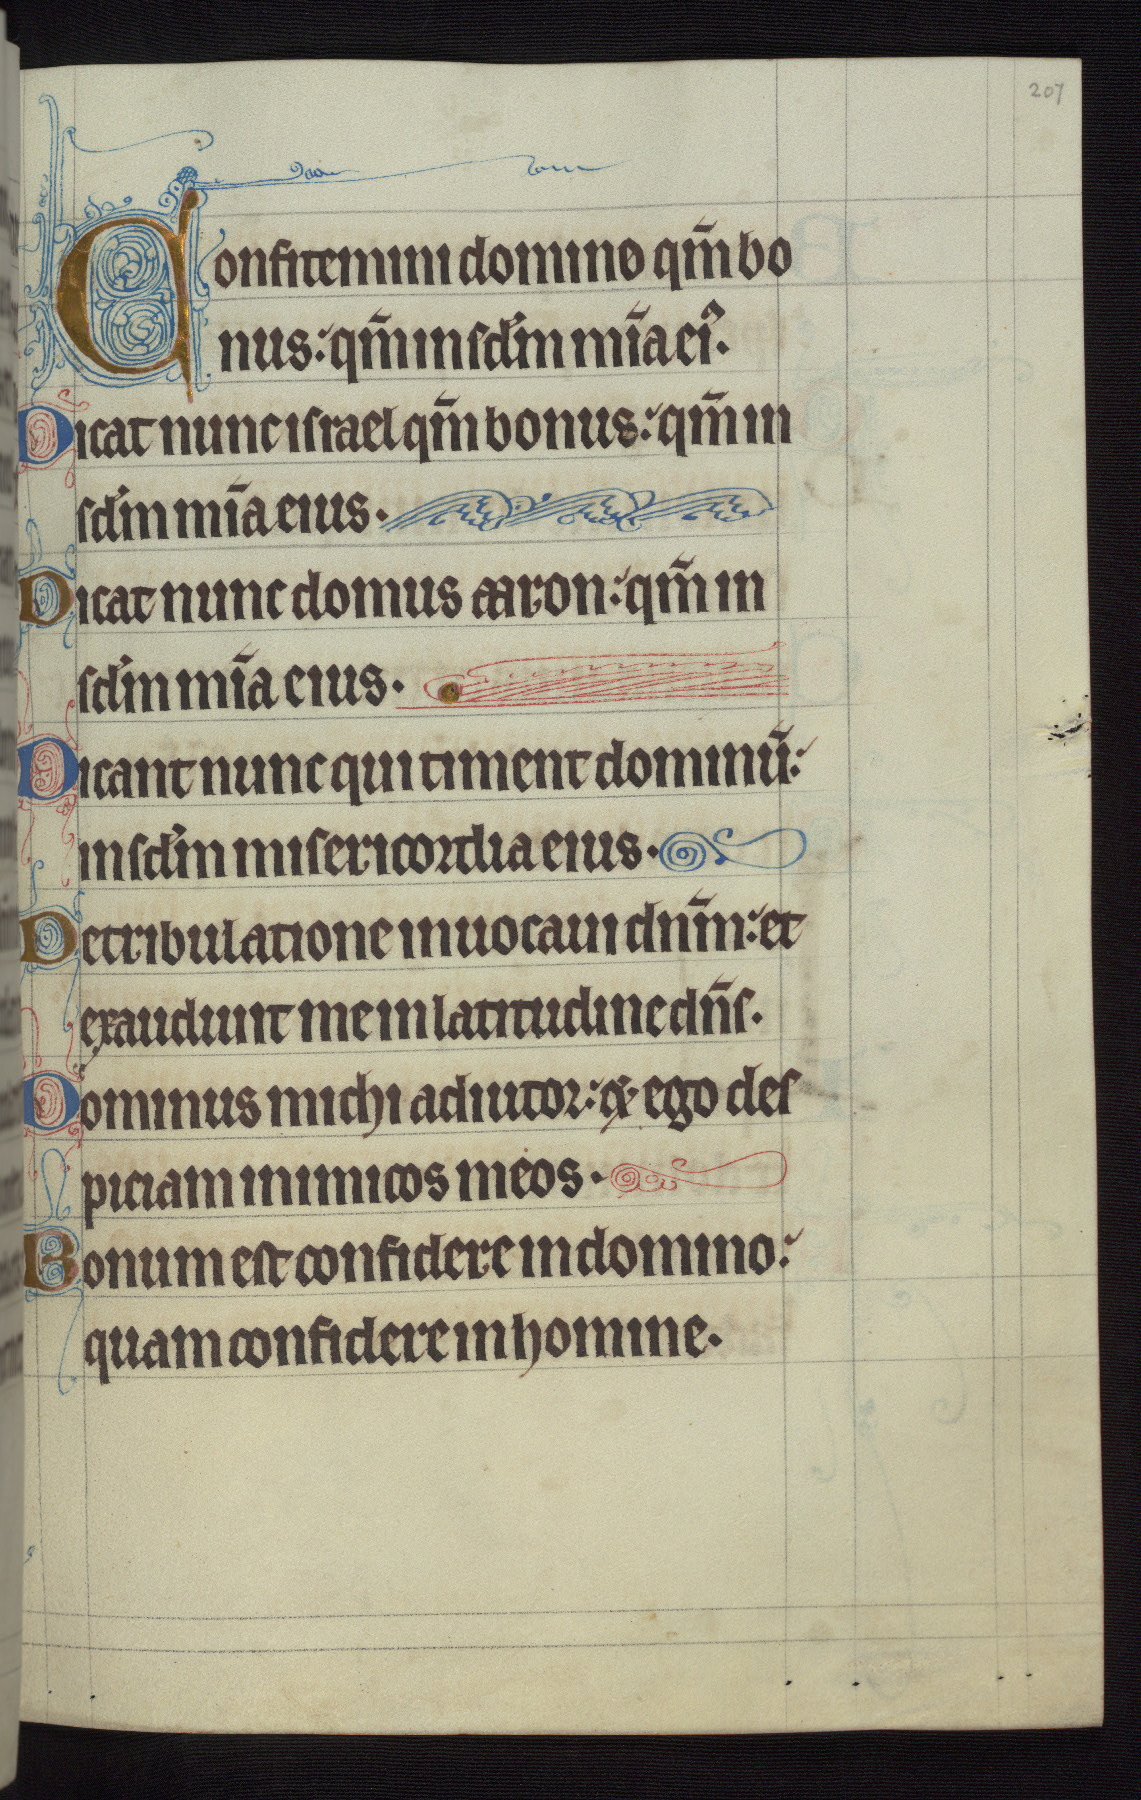 207
Confitemini domino qm̄ bo
nus: qm̄ in sclm̄ mīa ei᾿.
Dicat nunc israel qm̄ bonus: qm̄ in
sclm̄ mīa eius.
Dicat nunc domus aaron: qm̄ in
sclm̄ mīa eius.
Dicant nunc qui timent dominū:
in sclm̄ misericordia eius.
De tribulatione inuocaui dnm̄: et
exaudiuit me in latitudine dn̄s.
Dominus michi adiutor: & ego des
piciam inimicos meos.
Bonum est confidere in domino:
quam confidere in homine.